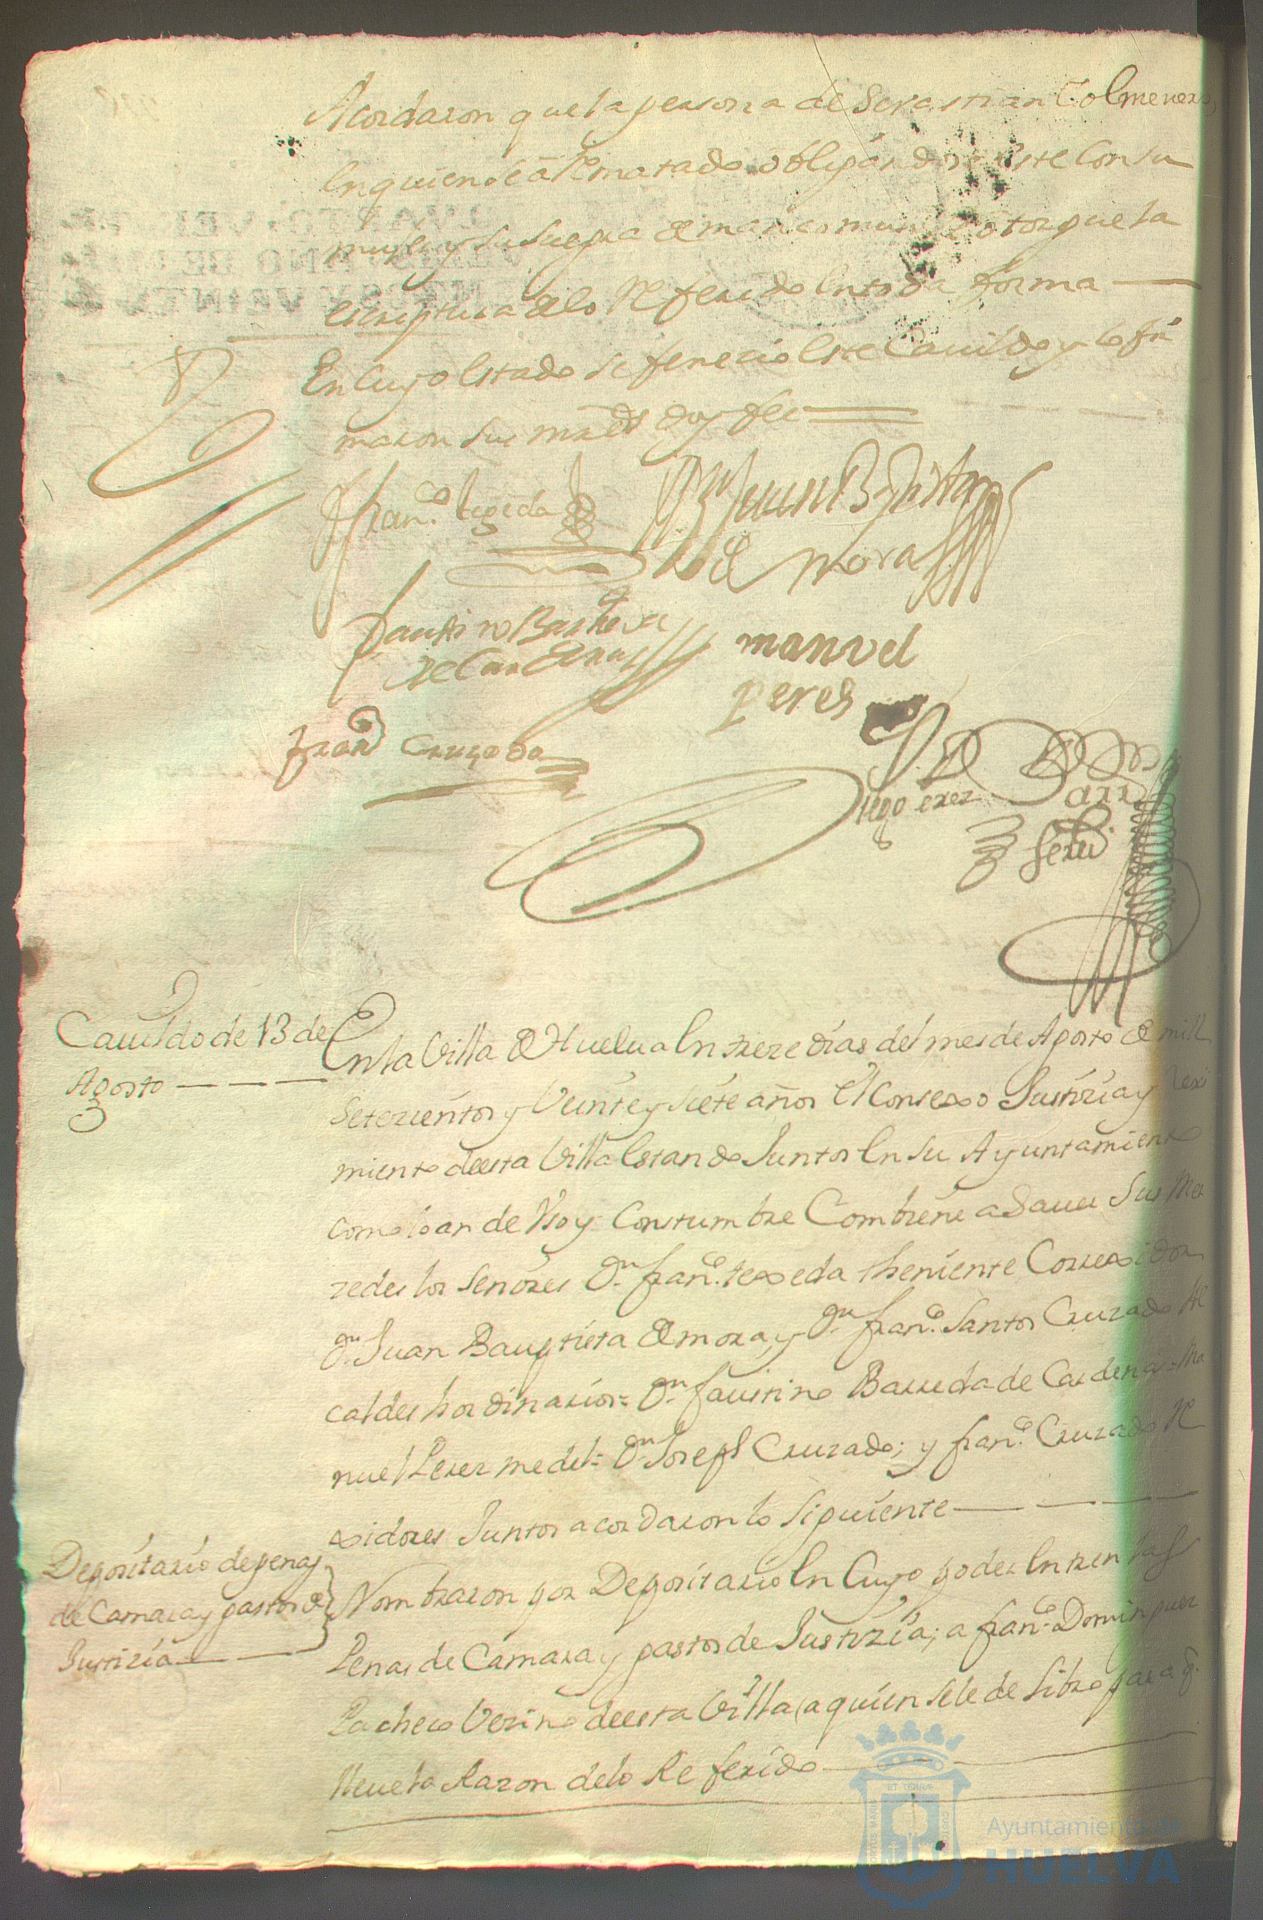 Acordaron que la persona de Sevastian Colmenero,
en quien se a Rematado obligandose este con su
muger y su suegra de mancomun otorgue la
escriptura de lo Referido en toda forma —
En Cuyo estado se fenecio este Cauildo y lo fir
maron sus mrds doy fee =
Franco. tegeda
Dn Juan Baptista
de Mora
Faustino Barreda
de Cardenas
manuel
peres
Franco Cruzado
Diego Perez
Cauildo de 13 de
Agosto — — —
En la Villa de Huelua en treze dias del mes de Agosto de mill
Setezientos y Veinte y siete años El Consexo Justizia y Rexi
miento de esta Villa estando Juntos en su Ayuntamiento
como lo an de Vso y Constumbre Combiene a Sauer Sus Mer
zedes los Señores Dn. franco. texeda theniente Correxidor
Dn. Juan Bauptista de mora, y Dn. franco. Santos Cruzado Al
caldes hordinarios = Dn. faustino Barreda de Cardenas = Ma
nuel Perez medel = Dn. Joseph Cruzado; y franco. Cruzado Re
xidores Juntos acordaron lo siguiente — — — —
Depositario de penas
de Camara y gastos de
Justizia — — —
Nombraron por Depositario en Cuyo poder entren las
Penas de Camara y gastos de Justizia; a franco. Dominguez
Pacheco Vezino de esta Villa, a quien se le de Libro para q.
lleue la Razon de lo Referido —
Ayuntamiento de
HUELVA